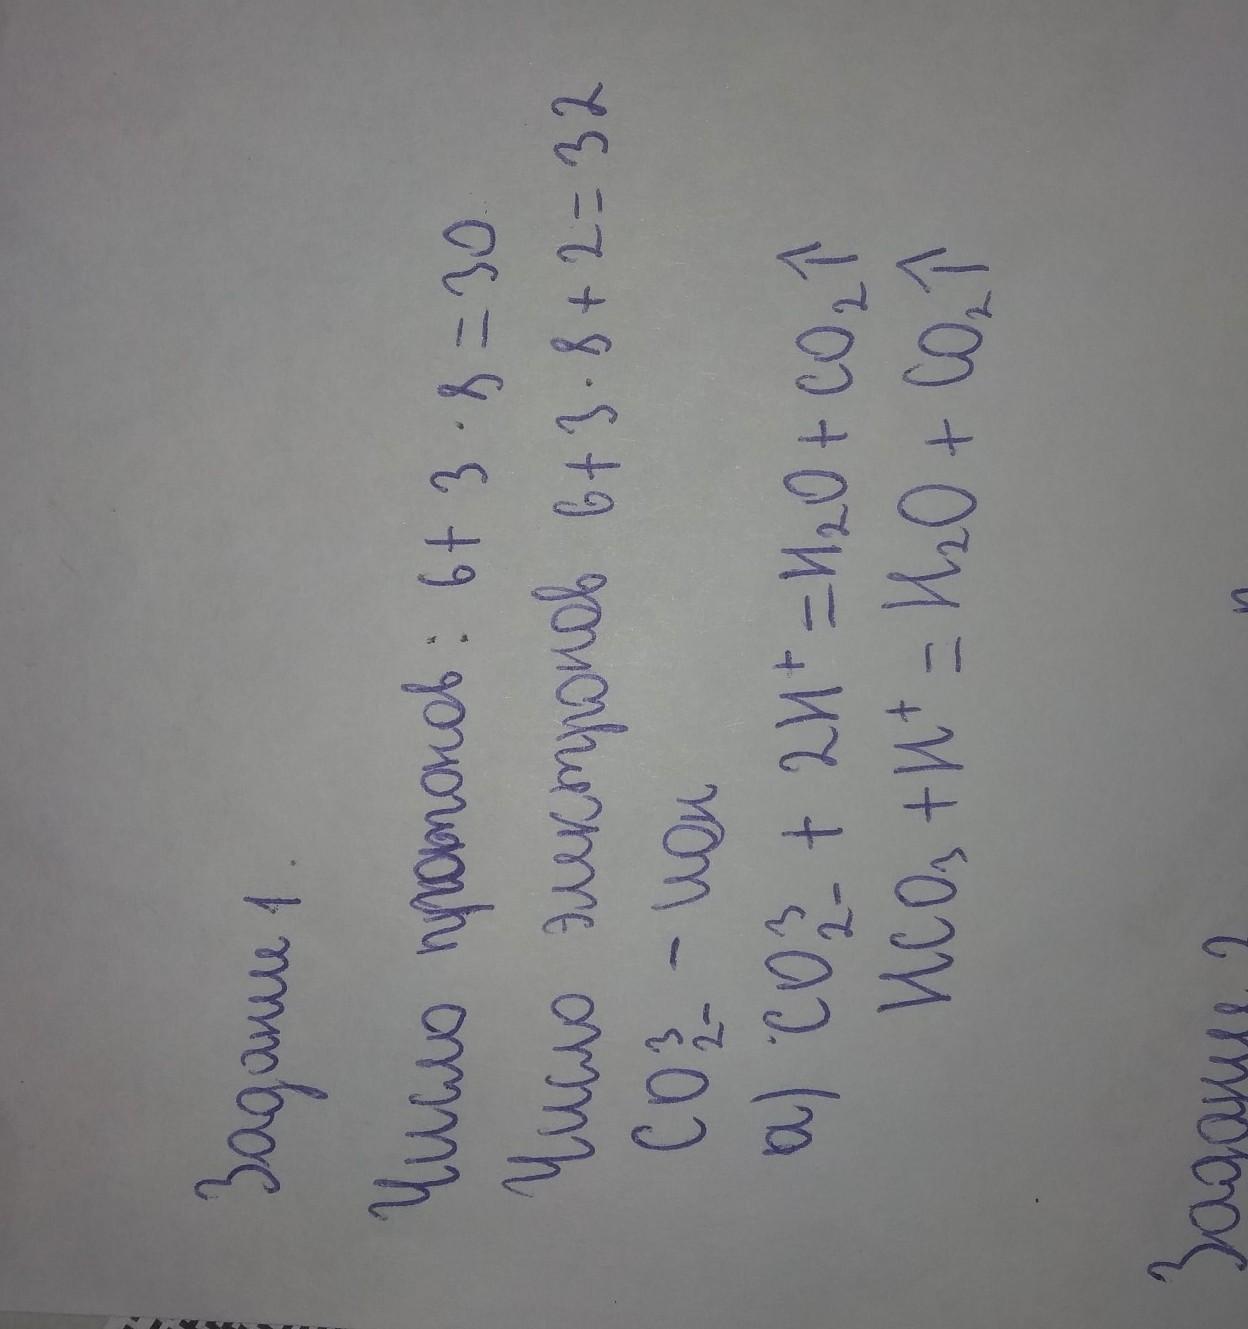 Задание 1.
Число протонов: 6 + 3 · 8 = 30
Число электронов 6 + 3 · 8 + 2 = 32
CO₂₋³ – ион
а) CO₂₋³ + 2H⁺ = H₂O + CO₂↑
HCO₃ + H⁺ = H₂O + CO₂↑
Задание 2